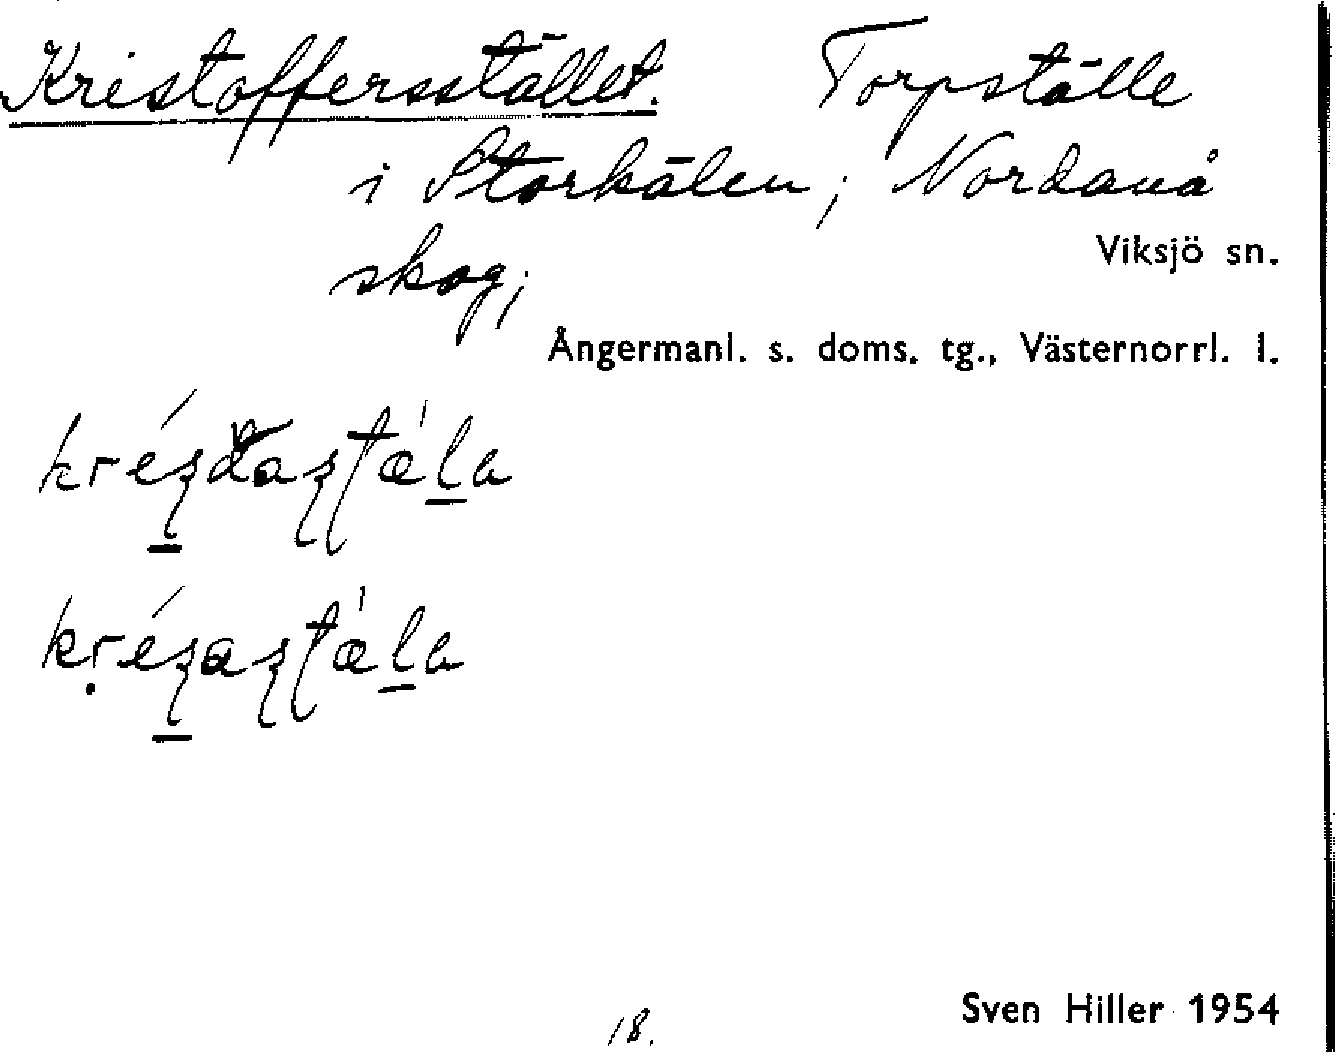 Kristoffersstället. Torpställe
i Storkälen; Nordanå
skog;
Viksjö sn.
Ångermanl. s. doms. tg., Västernorrl. l.
18.
Sven Hiller 1954